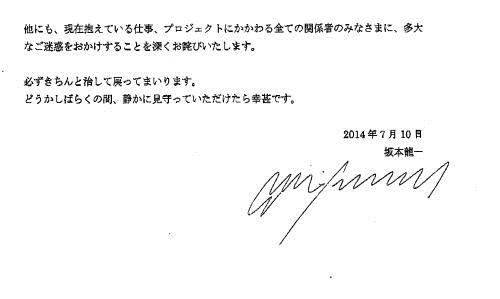 他にも、現在抱えている仕事、プロジェクトにかかわる全ての関係者のみなさまに、多大
なご迷惑をおかけすることを深くお詫びいたします。
必ずきちんと治して戻ってまいります。
どうかしばらくの間、静かに見守っていただけたら幸甚です。
2014年7月10日
坂本龍一